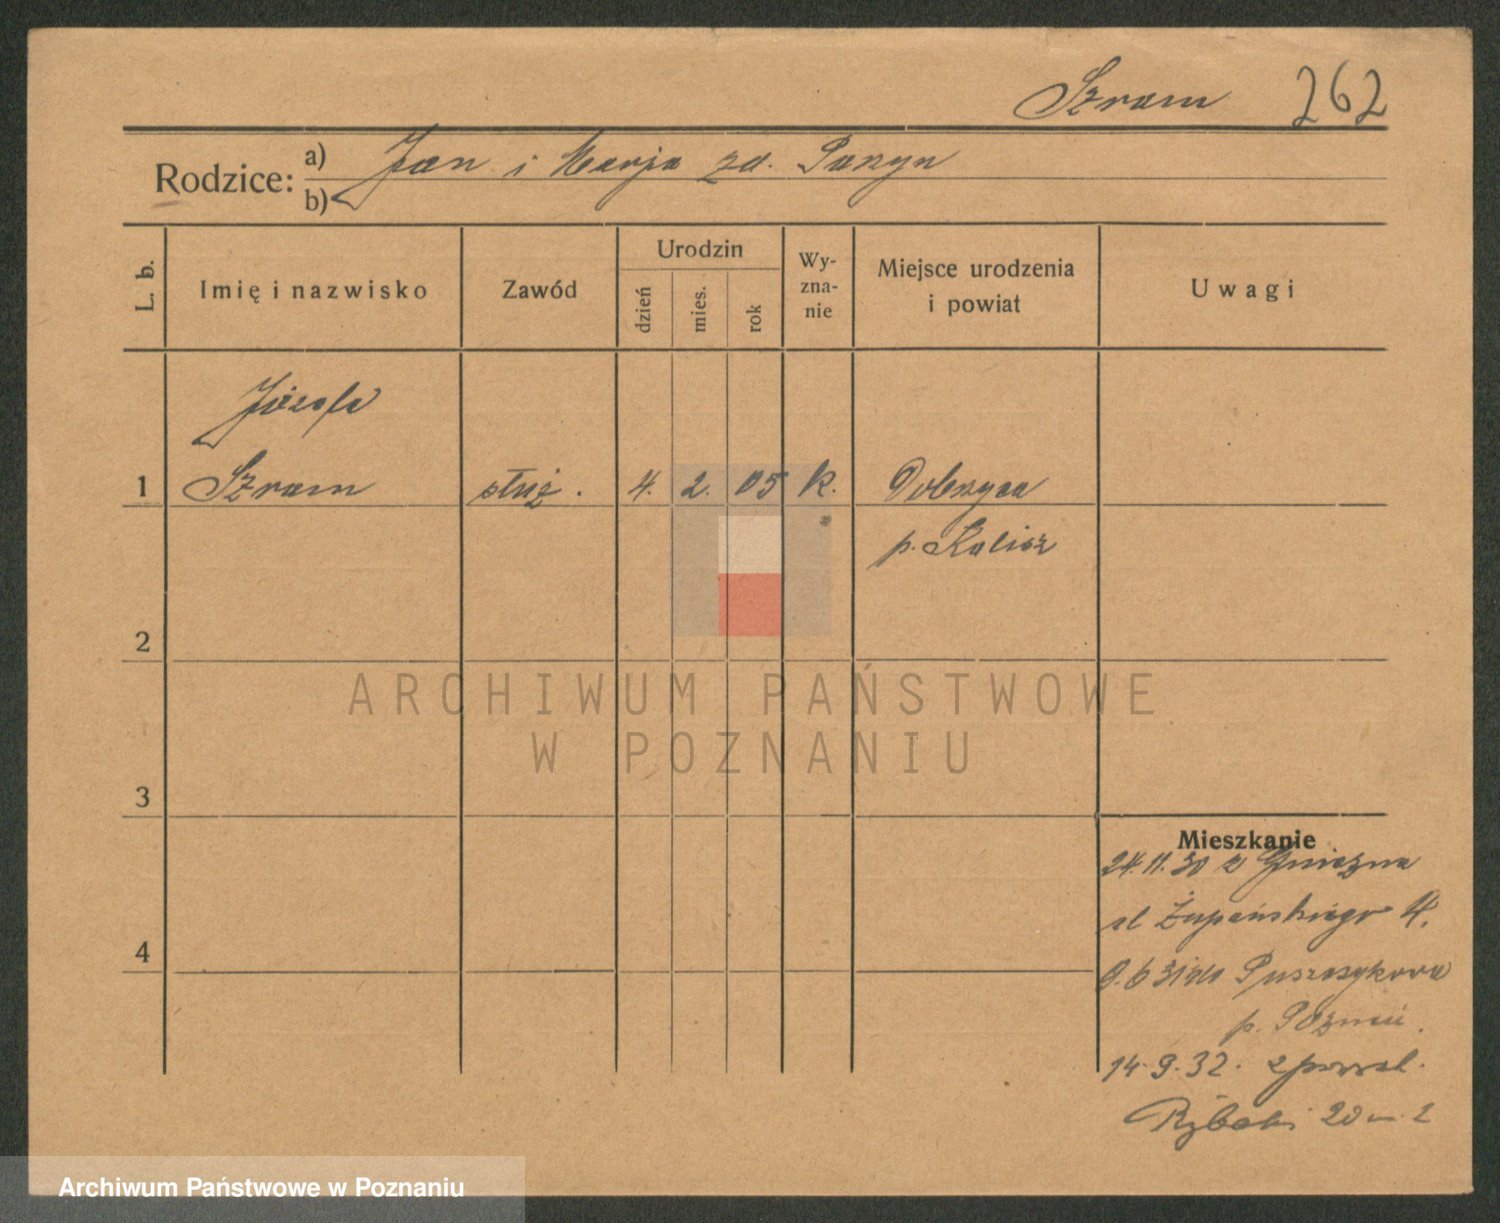 Szram 262
Rodzice: a) Jan i Marja zd. Parzyn
b)
L. b.
Imię i nazwisko
Zawód
Urodzin
dzień
mies.
rok
Wy-
zna-
nie
Miejsce urodzenia
i powiat
Uwagi
Józefa
1 Szram służ. 4. 2. 05 k. Dobrzyca
p. Kalisz
2
ARCHIWUM PAŃSTWOWE
W POZNANIU
3
Mieszkanie
24.11.30 z Gniezna
ul Żupańskiego 4.
6 31 do Puszczykowa
p. Poznań.
14.9.32. z powrot.
Rybaki 20 m. 2
4
Archiwum Państwowe w Poznaniu